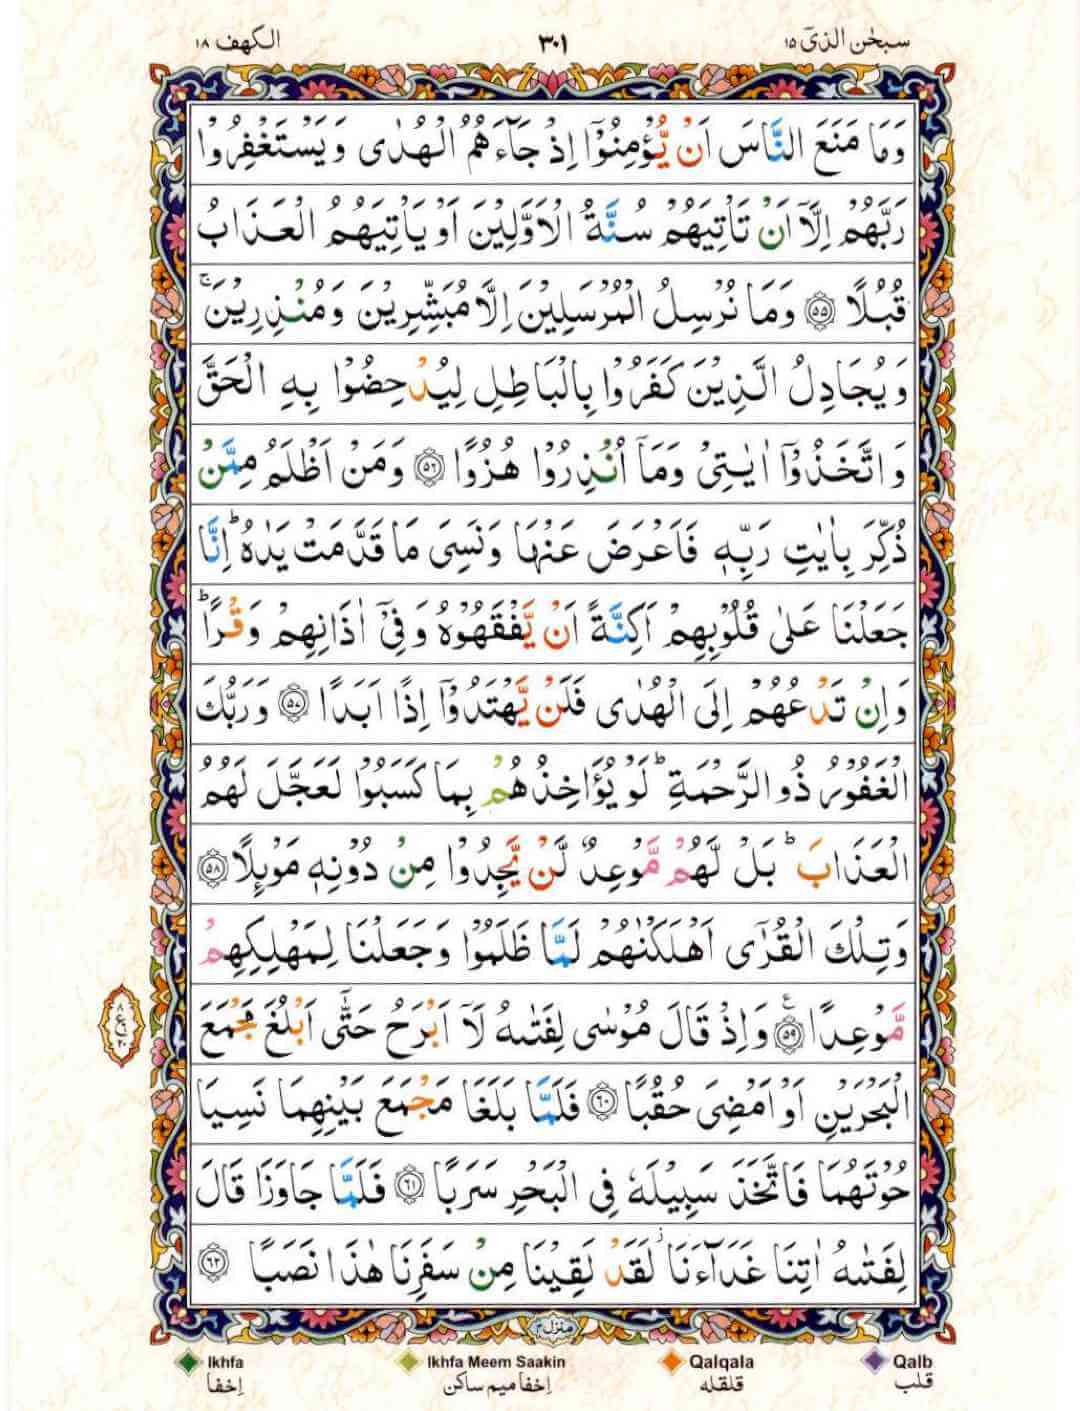 سبحٰن الذیٓ ۱۵
۳۰۱
الکهف ۱۸
وَمَا مَنَعَ النَّاسَ اَنْ یُّؤْمِنُوْۤا اِذْ جَآءَهُمُ الْهُدٰی وَ یَسْتَغْفِرُوْا
رَبَّهُمْ اِلَّاۤ اَنْ تَاْتِیَهُمْ سُنَّةُ الْاَوَّلِیْنَ اَوْ یَاْتِیَهُمُ الْعَذَابُ
قُبُلًا ﴿۵۵﴾ وَمَا نُرْسِلُ الْمُرْسَلِیْنَ اِلَّا مُبَشِّرِیْنَ وَ مُنْذِرِیْنَ ۚ
وَ یُجَادِلُ الَّذِیْنَ كَفَرُوْا بِالْبَاطِلِ لِیُدْحِضُوْا بِهِ الْحَقَّ
وَ اتَّخَذُوْۤا اٰیٰتِیْ وَمَاۤ اُنْذِرُوْا هُزُوًا ﴿۵۶﴾ وَمَنْ اَظْلَمُ مِمَّنْ
ذُكِّرَ بِاٰیٰتِ رَبِّهٖ فَاَعْرَضَ عَنْهَا وَنَسِیَ مَا قَدَّمَتْ یَدٰهُ ؕ اِنَّا
جَعَلْنَا عَلٰی قُلُوْبِهِمْ اَكِنَّةً اَنْ یَّفْقَهُوْهُ وَ فِیْۤ اٰذَانِهِمْ وَقْرًا ؕ
وَ اِنْ تَدْعُهُمْ اِلَی الْهُدٰی فَلَنْ یَّهْتَدُوْۤا اِذًا اَبَدًا ﴿۵۷﴾ وَ رَبُّكَ
الْغَفُوْرُ ذُو الرَّحْمَةِ ؕ لَوْ یُؤَاخِذُهُمْ بِمَا كَسَبُوْا لَعَجَّلَ لَهُمُ
الْعَذَابَ ؕ بَلْ لَّهُمْ مَّوْعِدٌ لَّنْ یَّجِدُوْا مِنْ دُوْنِهٖ مَوْىِٕلًا ﴿۵۸﴾
وَ تِلْكَ الْقُرٰۤی اَهْلَكْنٰهُمْ لَمَّا ظَلَمُوْا وَ جَعَلْنَا لِمَهْلِكِهِمْ
مَّوْعِدًا ﴿۵۹﴾ وَ اِذْ قَالَ مُوْسٰی لِفَتٰىهُ لَاۤ اَبْرَحُ حَتّٰۤی اَبْلُغَ مَجْمَعَ
الْبَحْرَیْنِ اَوْ اَمْضِیَ حُقُبًا ﴿۶۰﴾ فَلَمَّا بَلَغَا مَجْمَعَ بَیْنِهِمَا نَسِیَا
حُوْتَهُمَا فَاتَّخَذَ سَبِیْلَهٗ فِی الْبَحْرِ سَرَبًا ﴿۶۱﴾ فَلَمَّا جَاوَزَا قَالَ
لِفَتٰىهُ اٰتِنَا غَدَآءَنَا ؗ لَقَدْ لَقِیْنَا مِنْ سَفَرِنَا هٰذَا نَصَبًا ﴿۶۲﴾
منزل ۴
Ikhfa
Ikhfa Meem Saakin
Qalqala
Qalb
اِخفا
اِخفا میم ساکن
قلقله
قلب